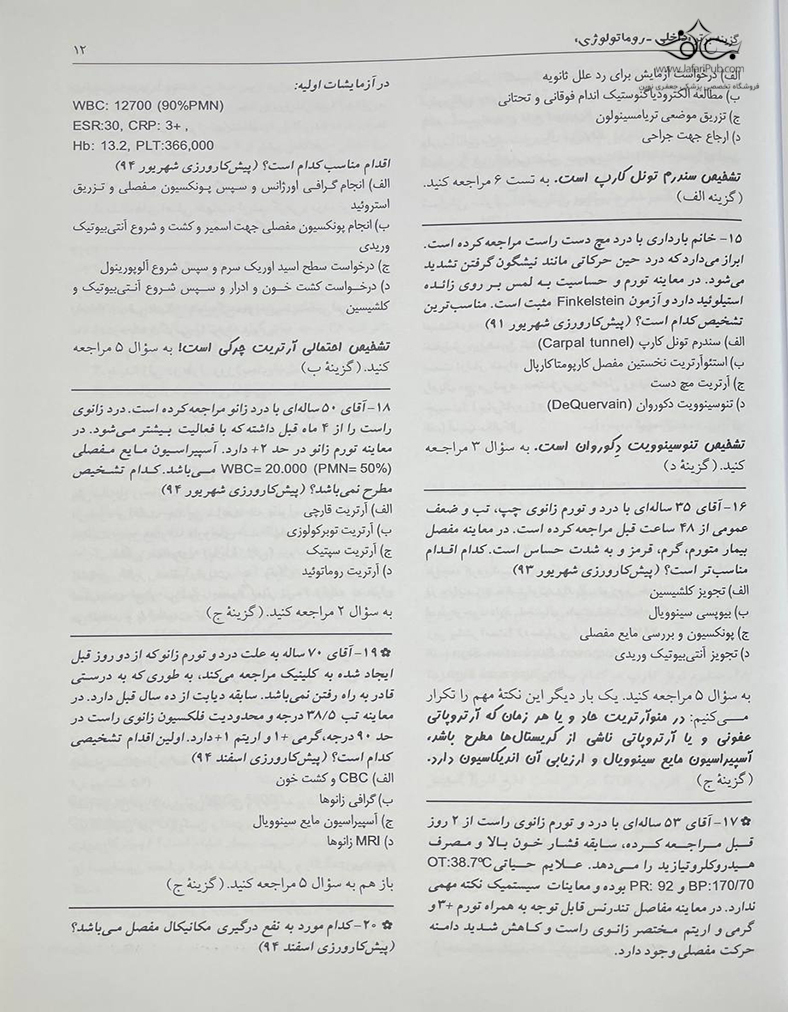 گزینه برتر داخلی - روماتولوژی،
۱۲
www.JafariPub.com
فروشگاه تخصصی پزشکی جعفری نوین
الف) درخواست آزمایش برای رد علل ثانویه
ب) مطالعه الکترودیاگنوستیک اندام فوقانی و تحتانی
ج) تزریق موضعی تریامسینولون
د) ارجاع جهت جراحی
تشخیص سندرم تونل کارپ است. به تست ۶ مراجعه کنید.
(گزینه الف)
۱۵- خانم بارداری با درد مچ دست راست مراجعه کرده است.
ابراز می‌دارد که درد حین حرکاتی مانند نیشگون گرفتن تشدید
می‌شود. در معاینه تورم و حساسیت به لمس بر روی زائده
استیلوئید دارد و آزمون Finkelstein مثبت است. مناسب‌ترین
تشخیص کدام است؟ (پیش‌کارورزی شهریور ۹۱)
الف) سندرم تونل کارپ (Carpal tunnel)
ب) استئوآرتریت نخستین مفصل کارپومتاکارپال
ج) آرتریت مچ دست
د) تنوسینوویت دکوروان (DeQuervain)
تشخیص تنوسینوویت دکوروان است. به سؤال ۳ مراجعه
کنید. (گزینهٔ د)
۱۶- آقای ۳۵ ساله‌ای با درد و تورم زانوی چپ، تب و ضعف
عمومی از ۴۸ ساعت قبل مراجعه کرده است. در معاینه مفصل
بیمار متورم، گرم، قرمز و به شدت حساس است. کدام اقدام
مناسب‌تر است؟ (پیش‌کارورزی شهریور ۹۳)
الف) تجویز کلشیسین
ب) بیوپسی سینوویال
ج) پونکسیون و بررسی مایع مفصلی
د) تجویز آنتی‌بیوتیک وریدی
به سؤال ۵ مراجعه کنید. یک بار دیگر این نکتهٔ مهم را تکرار
می‌کنیم: در منوآرتریت حاد و یا هر زمان که آرتروپاتی
عفونی و یا آرتروپاتی ناشی از کریستال‌ها مطرح باشد،
آسپیراسیون مایع سینوویال و ارزیابی آن اندیکاسیون دارد.
(گزینهٔ ج)
✿ ۱۷- آقای ۵۳ ساله‌ای با درد و تورم زانوی راست از ۲ روز
قبل مراجعه کرده، سابقه فشار خون بالا و مصرف
هیدروکلروتیازید را می‌دهد. علایم حیاتی OT:38.7ºC
BP:170/70 و PR: 92 بوده و معاینات سیستمیک نکته مهمی
ندارد. در معاینه مفاصل تندرنس قابل توجه به همراه تورم +۳ و
گرمی و اریتم مختصر زانوی راست و کاهش شدید دامنه
حرکت مفصلی وجود دارد.
در آزمایشات اولیه:
WBC: 12700 (90%PMN)
ESR:30, CRP: 3+ ,
Hb: 13.2, PLT:366,000
اقدام مناسب کدام است؟ (پیش‌کارورزی شهریور ۹۴)
الف) انجام گرافی اورژانس و سپس پونکسیون مفصلی و تزریق
استروئید
ب) انجام پونکسیون مفصلی جهت اسمیر و کشت و شروع آنتی‌بیوتیک
وریدی
ج) درخواست سطح اسید اوریک سرم و سپس شروع آلوپورینول
د) درخواست کشت خون و ادرار و سپس شروع آنتی‌بیوتیک و
کلشیسین
تشخیص احتمالی آرتریت چرکی است! به سؤال ۵ مراجعه
کنید. (گزینهٔ ب)
۱۸- آقای ۵۰ ساله‌ای با درد زانو مراجعه کرده است. درد زانوی
راست را از ۴ ماه قبل داشته که با فعالیت بیشتر می‌شود. در
معاینه تورم زانو در حد ۲+ دارد. آسپیراسیون مایع مفصلی
WBC= 20.000 (PMN= 50%) می‌باشد. کدام تشخیص
مطرح نمی‌باشد؟ (پیش‌کارورزی شهریور ۹۴)
الف) آرتریت قارچی
ب) آرتریت توبرکولوزی
ج) آرتریت سپتیک
د) آرتریت روماتوئید
به سؤال ۲ مراجعه کنید. (گزینهٔ ج)
✿ ۱۹- آقای ۷۰ ساله به علت درد و تورم زانو که از دو روز قبل
ایجاد شده به کلینیک مراجعه می‌کند، به طوری که به درستی
قادر به راه رفتن نمی‌باشد. سابقه دیابت از ده سال قبل دارد. در
معاینه تب ۳۸/۵ درجه و محدودیت فلکسیون زانوی راست در
حد ۹۰ درجه، گرمی +۱ و اریتم ۱+ دارد. اولین اقدام تشخیصی
کدام است؟ (پیش‌کارورزی اسفند ۹۴)
الف) CBC و کشت خون
ب) گرافی زانوها
ج) آسپیراسیون مایع سینوویال
د) MRI زانوها
باز هم به سؤال ۵ مراجعه کنید. (گزینهٔ ج)
✿ ۲۰- کدام مورد به نفع درگیری مکانیکال مفصل می‌باشد؟
(پیش‌کارورزی اسفند ۹۴)